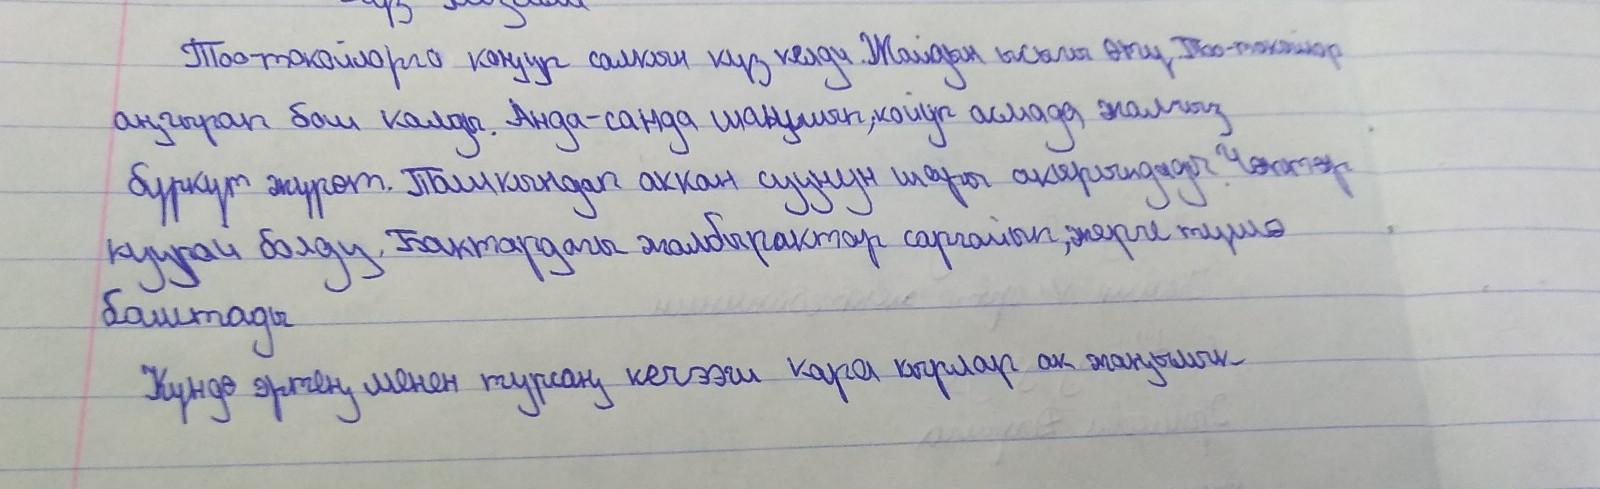 Тоо-токойлорго коңур салкын күз келди. Жайдын ысыгы өтүп, Тоо-токойлор
аңгырап бош калды. Анда-санда шаңшып, койуп асмада жалгыз
бүркүт жүрөт. Ташкындап аккан суунун шары акырындады. Чөптөр
куурай болду. Бактардагы жалбырактар саргайып, жерге түшө
баштады
Күндө эртең менен турсаң кечээги кара кырлар ак жаңылык